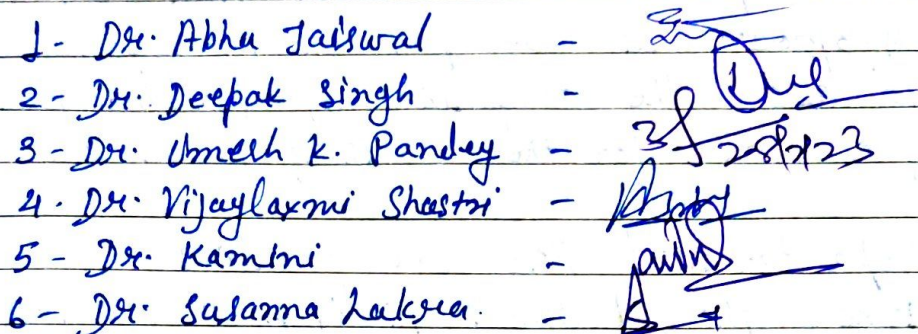 1- Dr. Abha Jaiswal -
2- Dr. Deepak Singh -
3- Dr. Umesh K. Pandey -
4. Dr. Vijaylaxmi Shastri -
5- Dr. Kamini -
6- Dr. Susanna Lakra. -